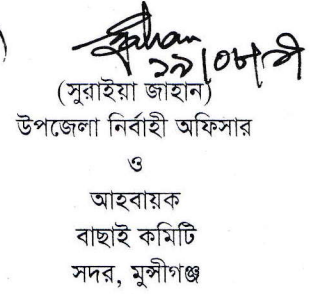 (সুরাইয়া জাহান)
উপজেলা নির্বাহী অফিসার
ও
আহবায়ক
বাছাই কমিটি
সদর, মুন্সীগঞ্জ